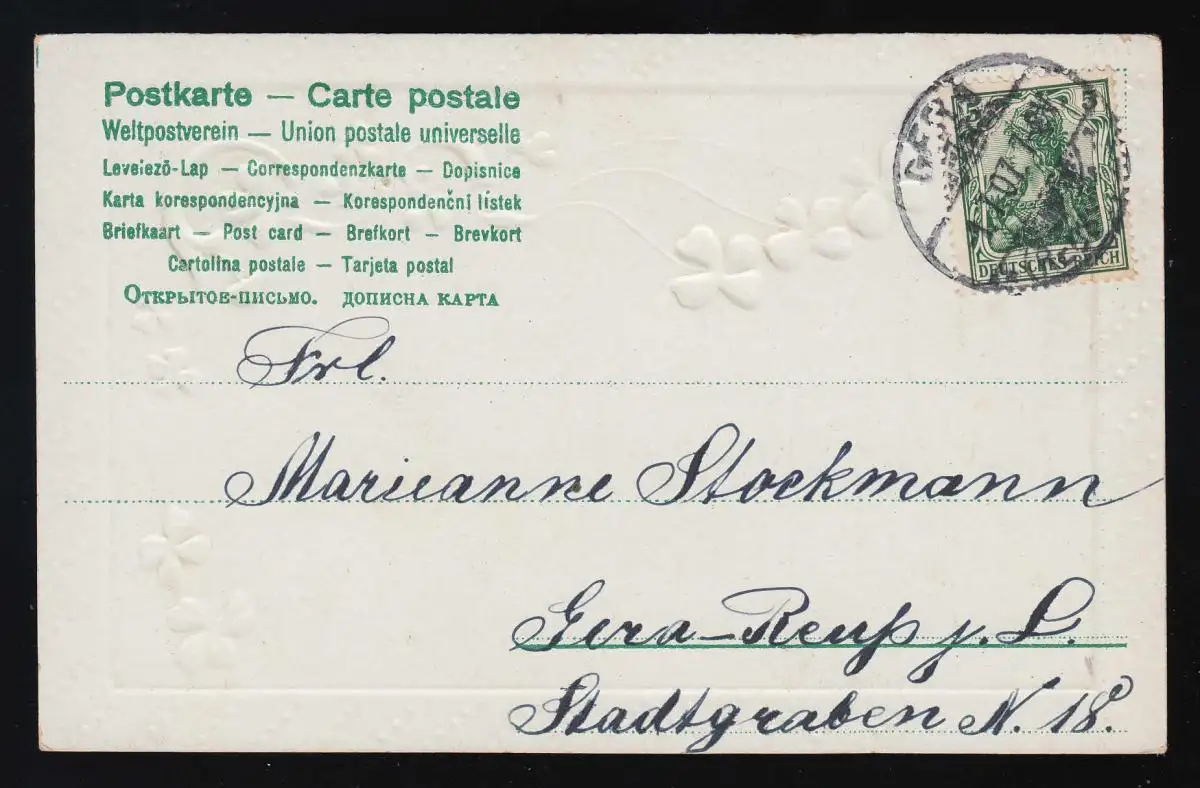 Postkarte — Carte postale
Weltpostverein — Union postale universelle
Levelező-Lap — Correspondenzkarte — Dopisnice
Karta korespondencyjna — Korespondenčni lístek
Briefkaart — Post card — Brefkort — Brevkort
Cartolina postale — Tarjeta postal
Открытое-письмо. дописна карта
GERA
07
5
DEUTSCHES REICH
Frl.
Marieanne Stockmann
Gera-Reuß j. L.
Stadtgraben N. 18.